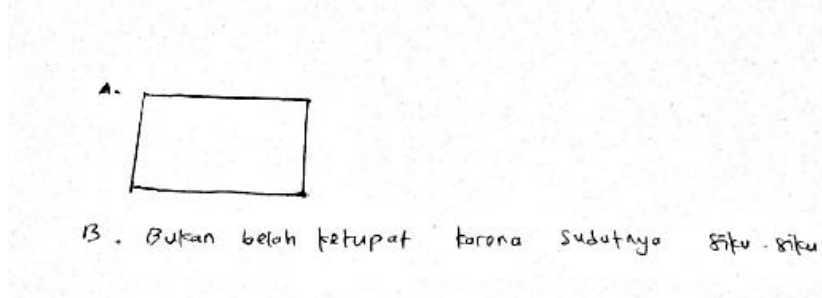 A.
B. Bukan belah ketupat karena sudutnya siku-siku